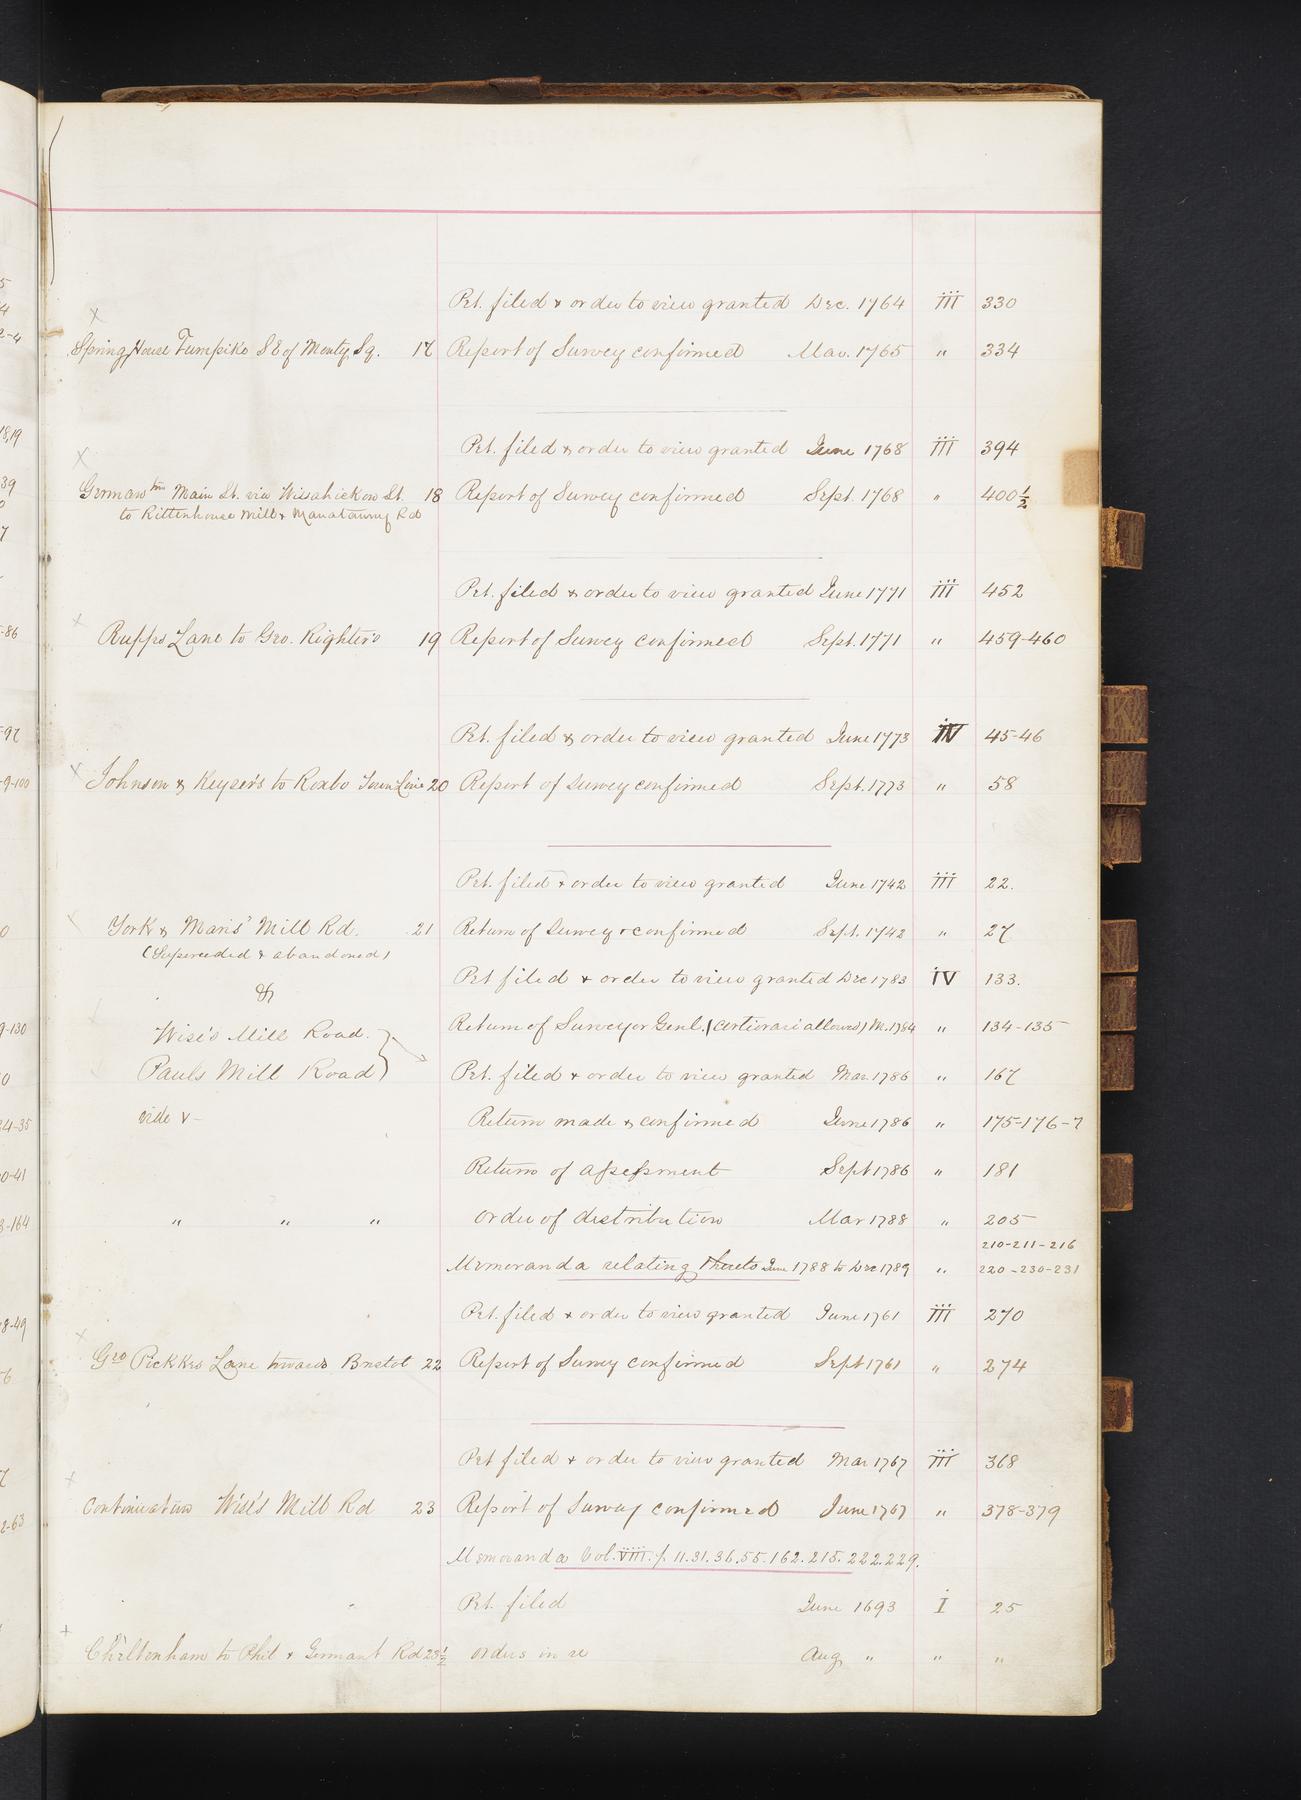 Pet. filed & order to view granted Dec. 1764 III 330
Spring House Turnpike S E of Monty. Sq. 17 Report of Survey confirmed Mar. 1765 " 334
Pet. filed & order to view granted June 1768 III 394
Germantn Main St. via Wissahickon St. 18 Report of Survey confirmed Sept. 1768 " 400½
to Rittenhouse Mill & Manatawny Rd
Pet. filed & order to view granted June 1771 III 452
Rupps Lane to Geo. Righter's 19 Report of Survey confirmed Sept. 1771 " 459-460
Pet. filed & order to view granted June 1773 IV 45-46
Johnson & Keyser's to Roxbo Town Line 20 Report of Survey confirmed Sept. 1773 " 58
Pet. filed & order to view granted June 1742 III 22.
York & Maris' Mill Rd. 21 Return of Survey & confirmed Sept. 1742 " 27
(Superceded & abandoned)
Pet filed & order to view granted Dec 1783 IV 133.
&
Wise's Mill Road. Return of Surveyor Genl. (certiorari allowed) M. 1784 " 134-135
Pauls Mill Road Pet. filed & order to view granted Mar. 1786 " 167
vide V- Return made & confirmed June 1786 " 175-176-7
Return of assessment Sept 1786 " 181
" " " order of distribution Mar 1788 " 205
210-211-216
Memoranda relating thereto June 1788 to Dec 1789 " 220-230-231
Pet. filed & order to view granted June 1761 III 270
Geo Pickkes Lane towards Bristol 22 Report of Survey confirmed Sept 1761 " 274
Pet filed & order to view granted Mar 1767 III 368
Continuation Wise's Mill Rd 23 Report of Survey confirmed June 1767 " 378-379
Memoranda Vol. VIII. p. 11.31.36.55.162.215.222.229.
Pet. filed June 1693 I 25
Cheltenham to Phil & Germant Rd 23½ orders in re Aug " " "